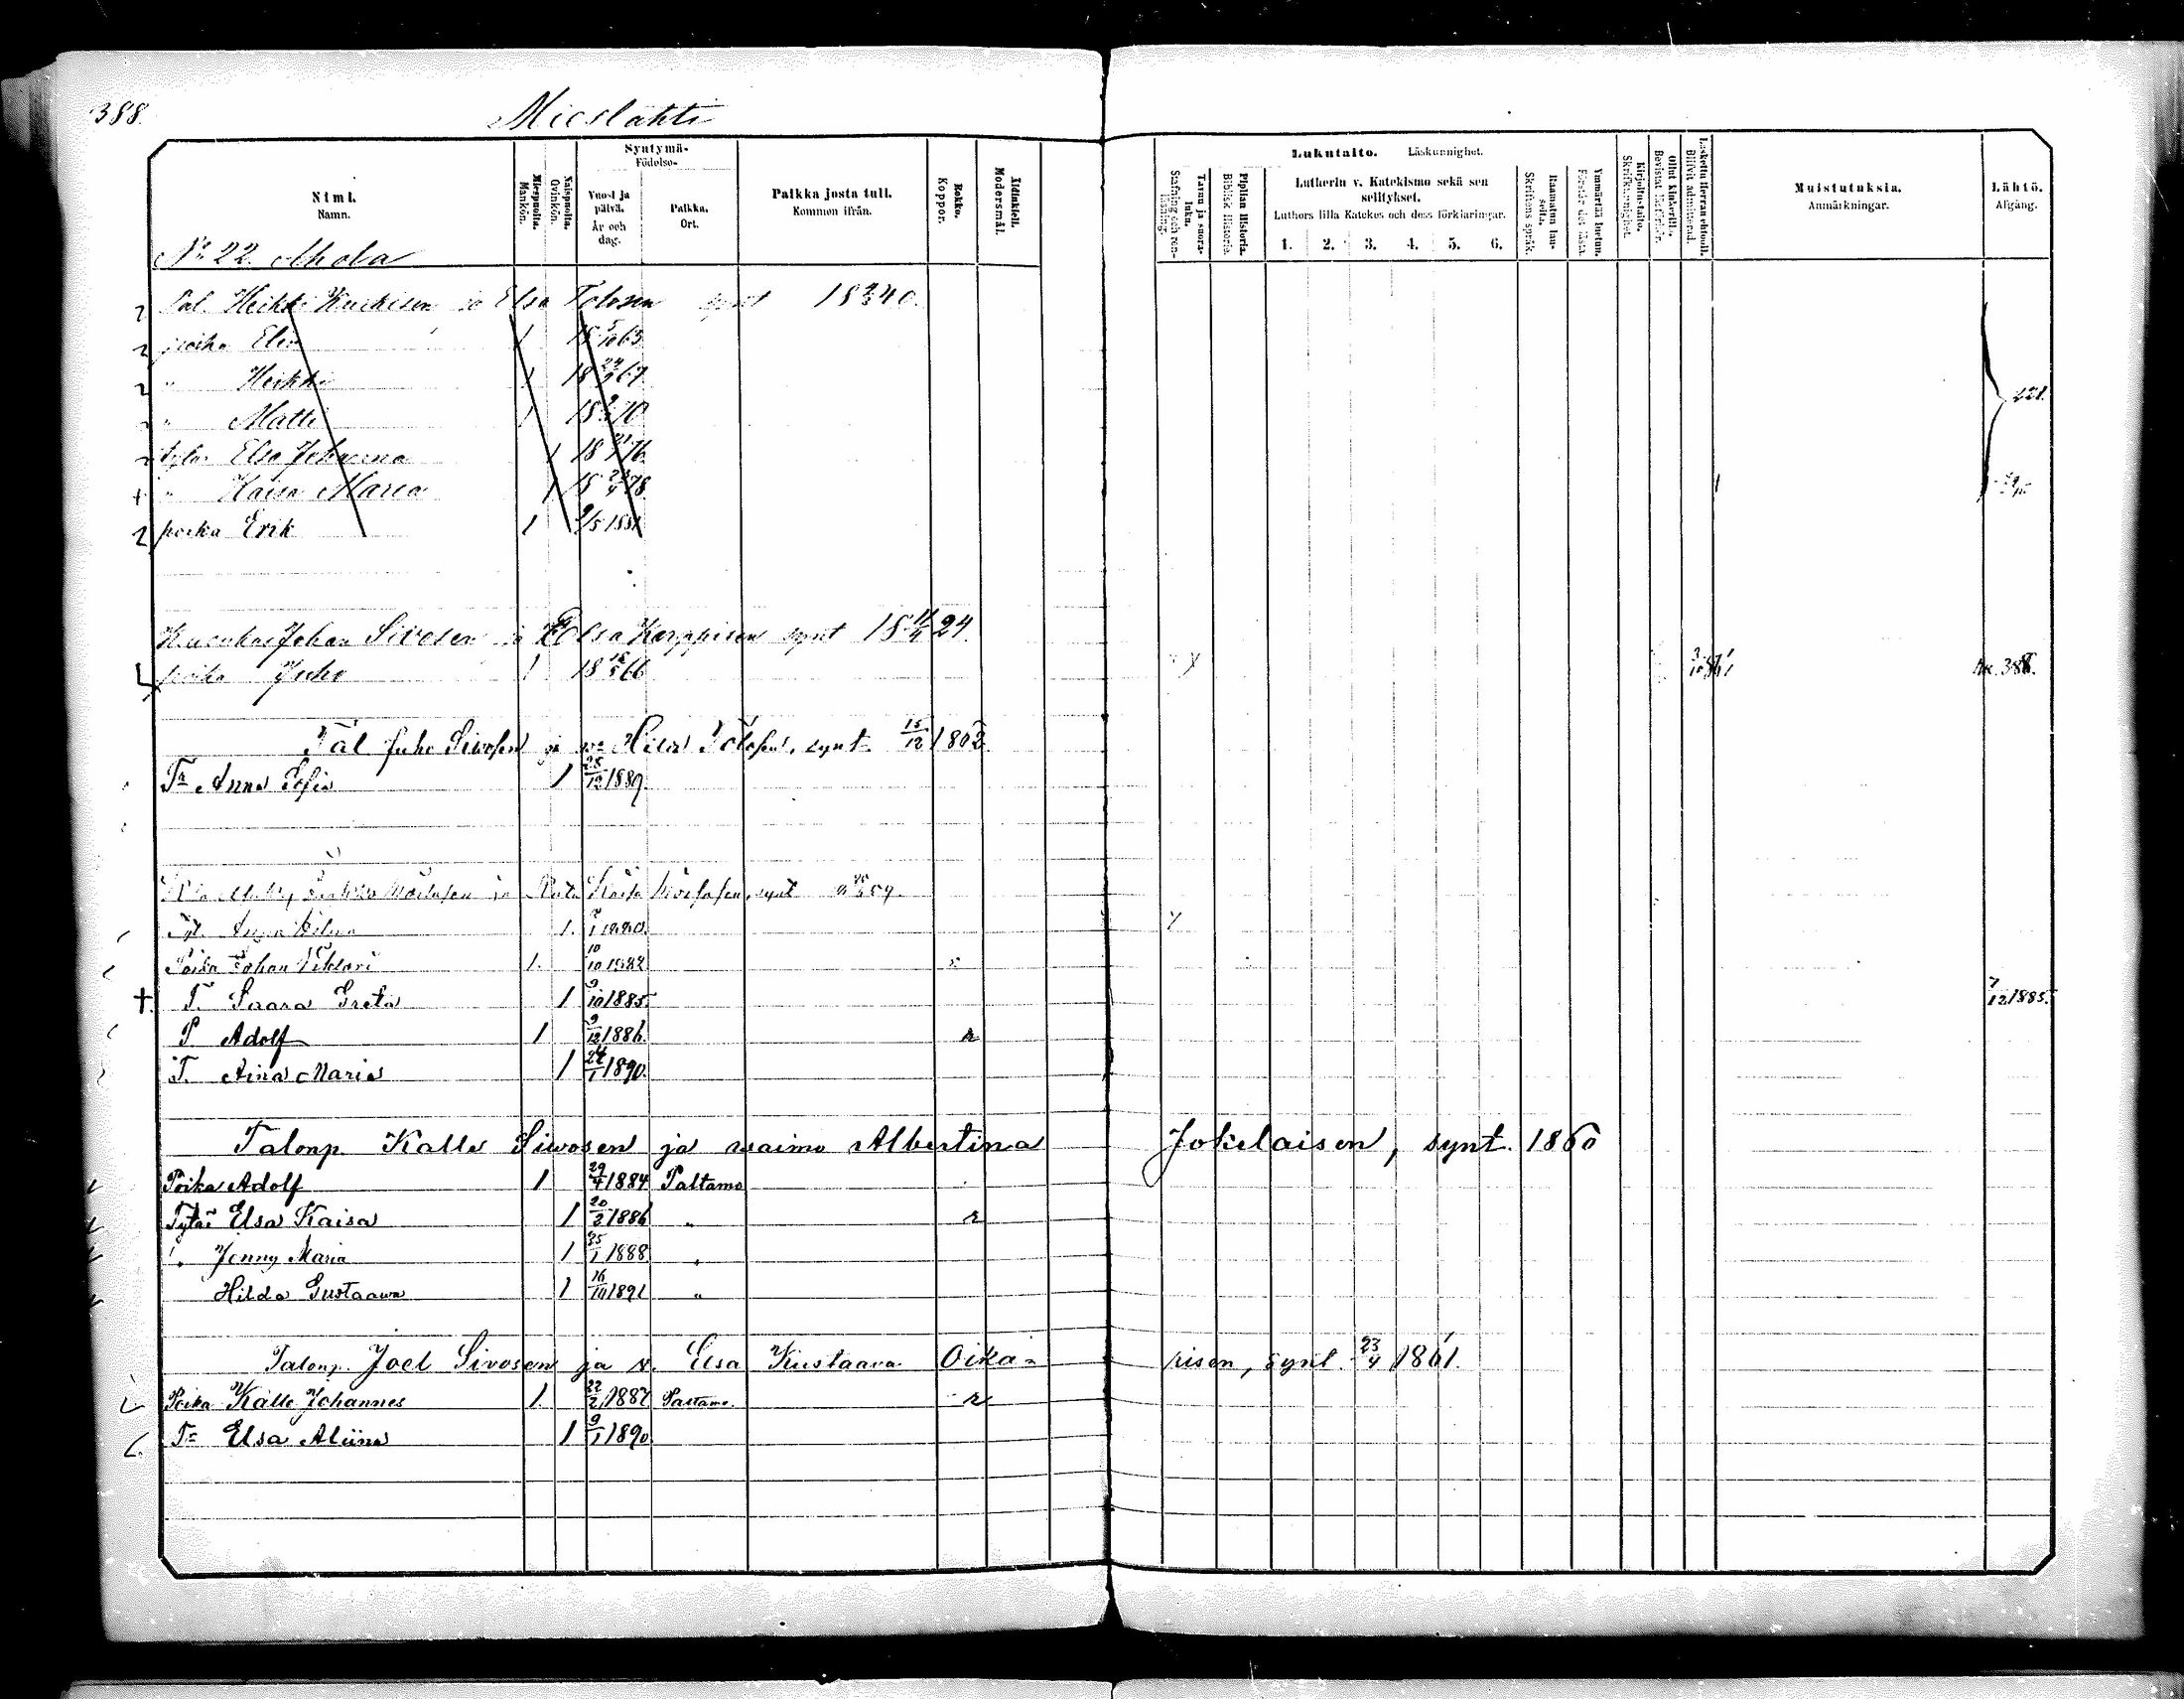 388.
Mieslahti
Nimi.
Namn.
Miespuolta.
Mankön.
Naispuolta.
Qvinkön.
Syntymä-
Födelse-
Vuosi ja päivä.
År och dag.
Paikka.
Ort.
Paikka josta tull.
Kommen ifrån.
Rokko.
Koppor.
Äidinkieli.
Modersmål.
Lukutaito. Läskunnighet.
Tavuu ja suora-luku.
Stafning och ren-läsning.
Piplian Historia.
Biblisk Historia.
Lutherin v. Katekismo sekä sen selitykset.
Luthers lilla Katekes och dess förklaringar.
1. 2. 3. 4. 5. 6.
Raamatun lau-seita.
Skriftens språk.
Ymmärtää luetun.
Förstår det lästa.
Kirjoitustaito.
Skrifkunnighet.
Ollut kinkerillä.
Bevistat läsförhör.
Laskettu Herran ehtoolle.
Blifvit admitterad.
Muistutuksia.
Anmärkningar.
Lähtö.
Afgång.
No 22 Ahola
Tal. Heikki Karkisen ja Elsa Tolosen synt 18 40.
poika Elias 1 18 5/10 63
" Heikki 1 18 67
" Matti 1 18 70
tytär Elsa Johanna 1 18 76
" Kaisa Maria 1 18 78
poika Erik 1 9/5 1881
Johan Sivosen ja Elsa Karppisen synt 18 11/4 24.
poika Juho 1 18 66 388.
Tal Juho Sivosen ja vo Hilda Tolosen, synt. 15/12 1862
Tr Anna Sofia 1 28/12 1889.
Kaisa synt 59.
Tyt. Anna 1. 1880.
Poika Johan Viktori 1. 10/10 1882
† T. Saara Greta 1 9/10 1885 7/12 1885.
P Adolf 1 9/12 1886. r
T. Aina Maria 1 24/1 1890.
Talonp Kalle Siwosen ja waimo Albertina Jokelaisen, synt. 1860
Poika Adolf 1 29/4 1884 Paltamo
Tytär Elsa Kaisa 1 20/2 1886 " r
" Jenny Maria 1 25/1 1888 "
Hilda Gustaawa 1 16/10 1891 "
Talonp. Joel Sivosen ja v. Elsa Kustaava Oika- risen, synt. 23/4 1861.
Poika Kalle Johannes 1. 22/2 1887 Paltamo. r
Tr Elsa Aliina 1 9/1 1890